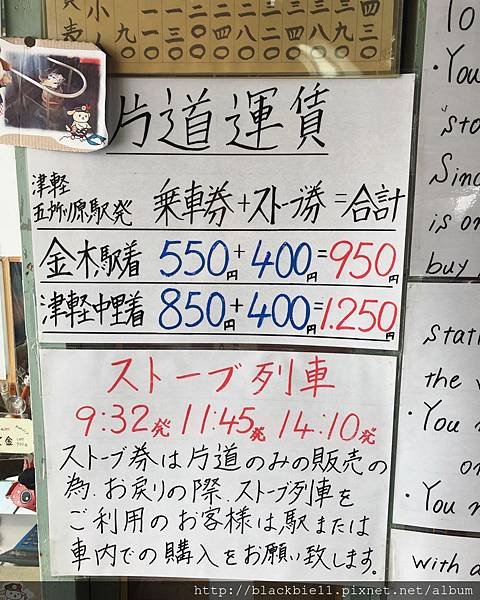 片道運賃
津軽
五所川原駅発 乗車券+ストーブ券=合計
金木駅着 550円+400円=950円
津軽中里着 850円+400円=1.250円
ストーブ列車
9:32発 11:45発 14:10発
ストーブ券は片道のみの販売の
為、お戻りの際、ストーブ列車を
ご利用のお客様は駅または
車内での購入をお願い致します。
To
・You
"sto
Sinc
is on
buy
stati
the
・You
on
・You
with
http://blackbie11.pixnet.net/album